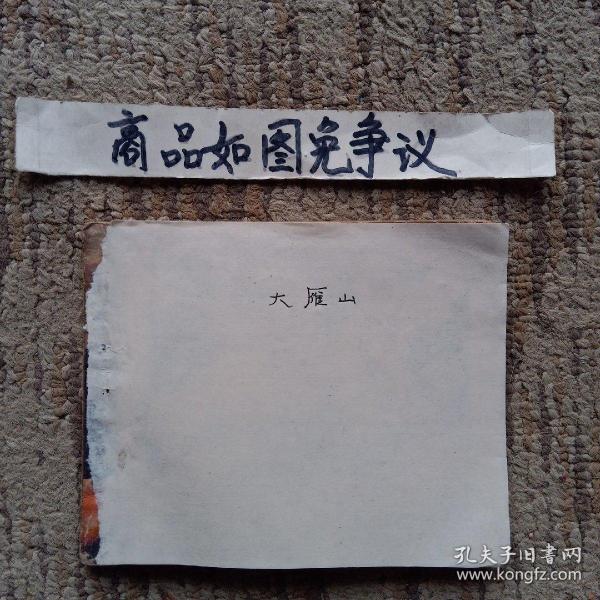 商品如图免争议
大雁山
孔夫子旧書网
www.kongfz.com